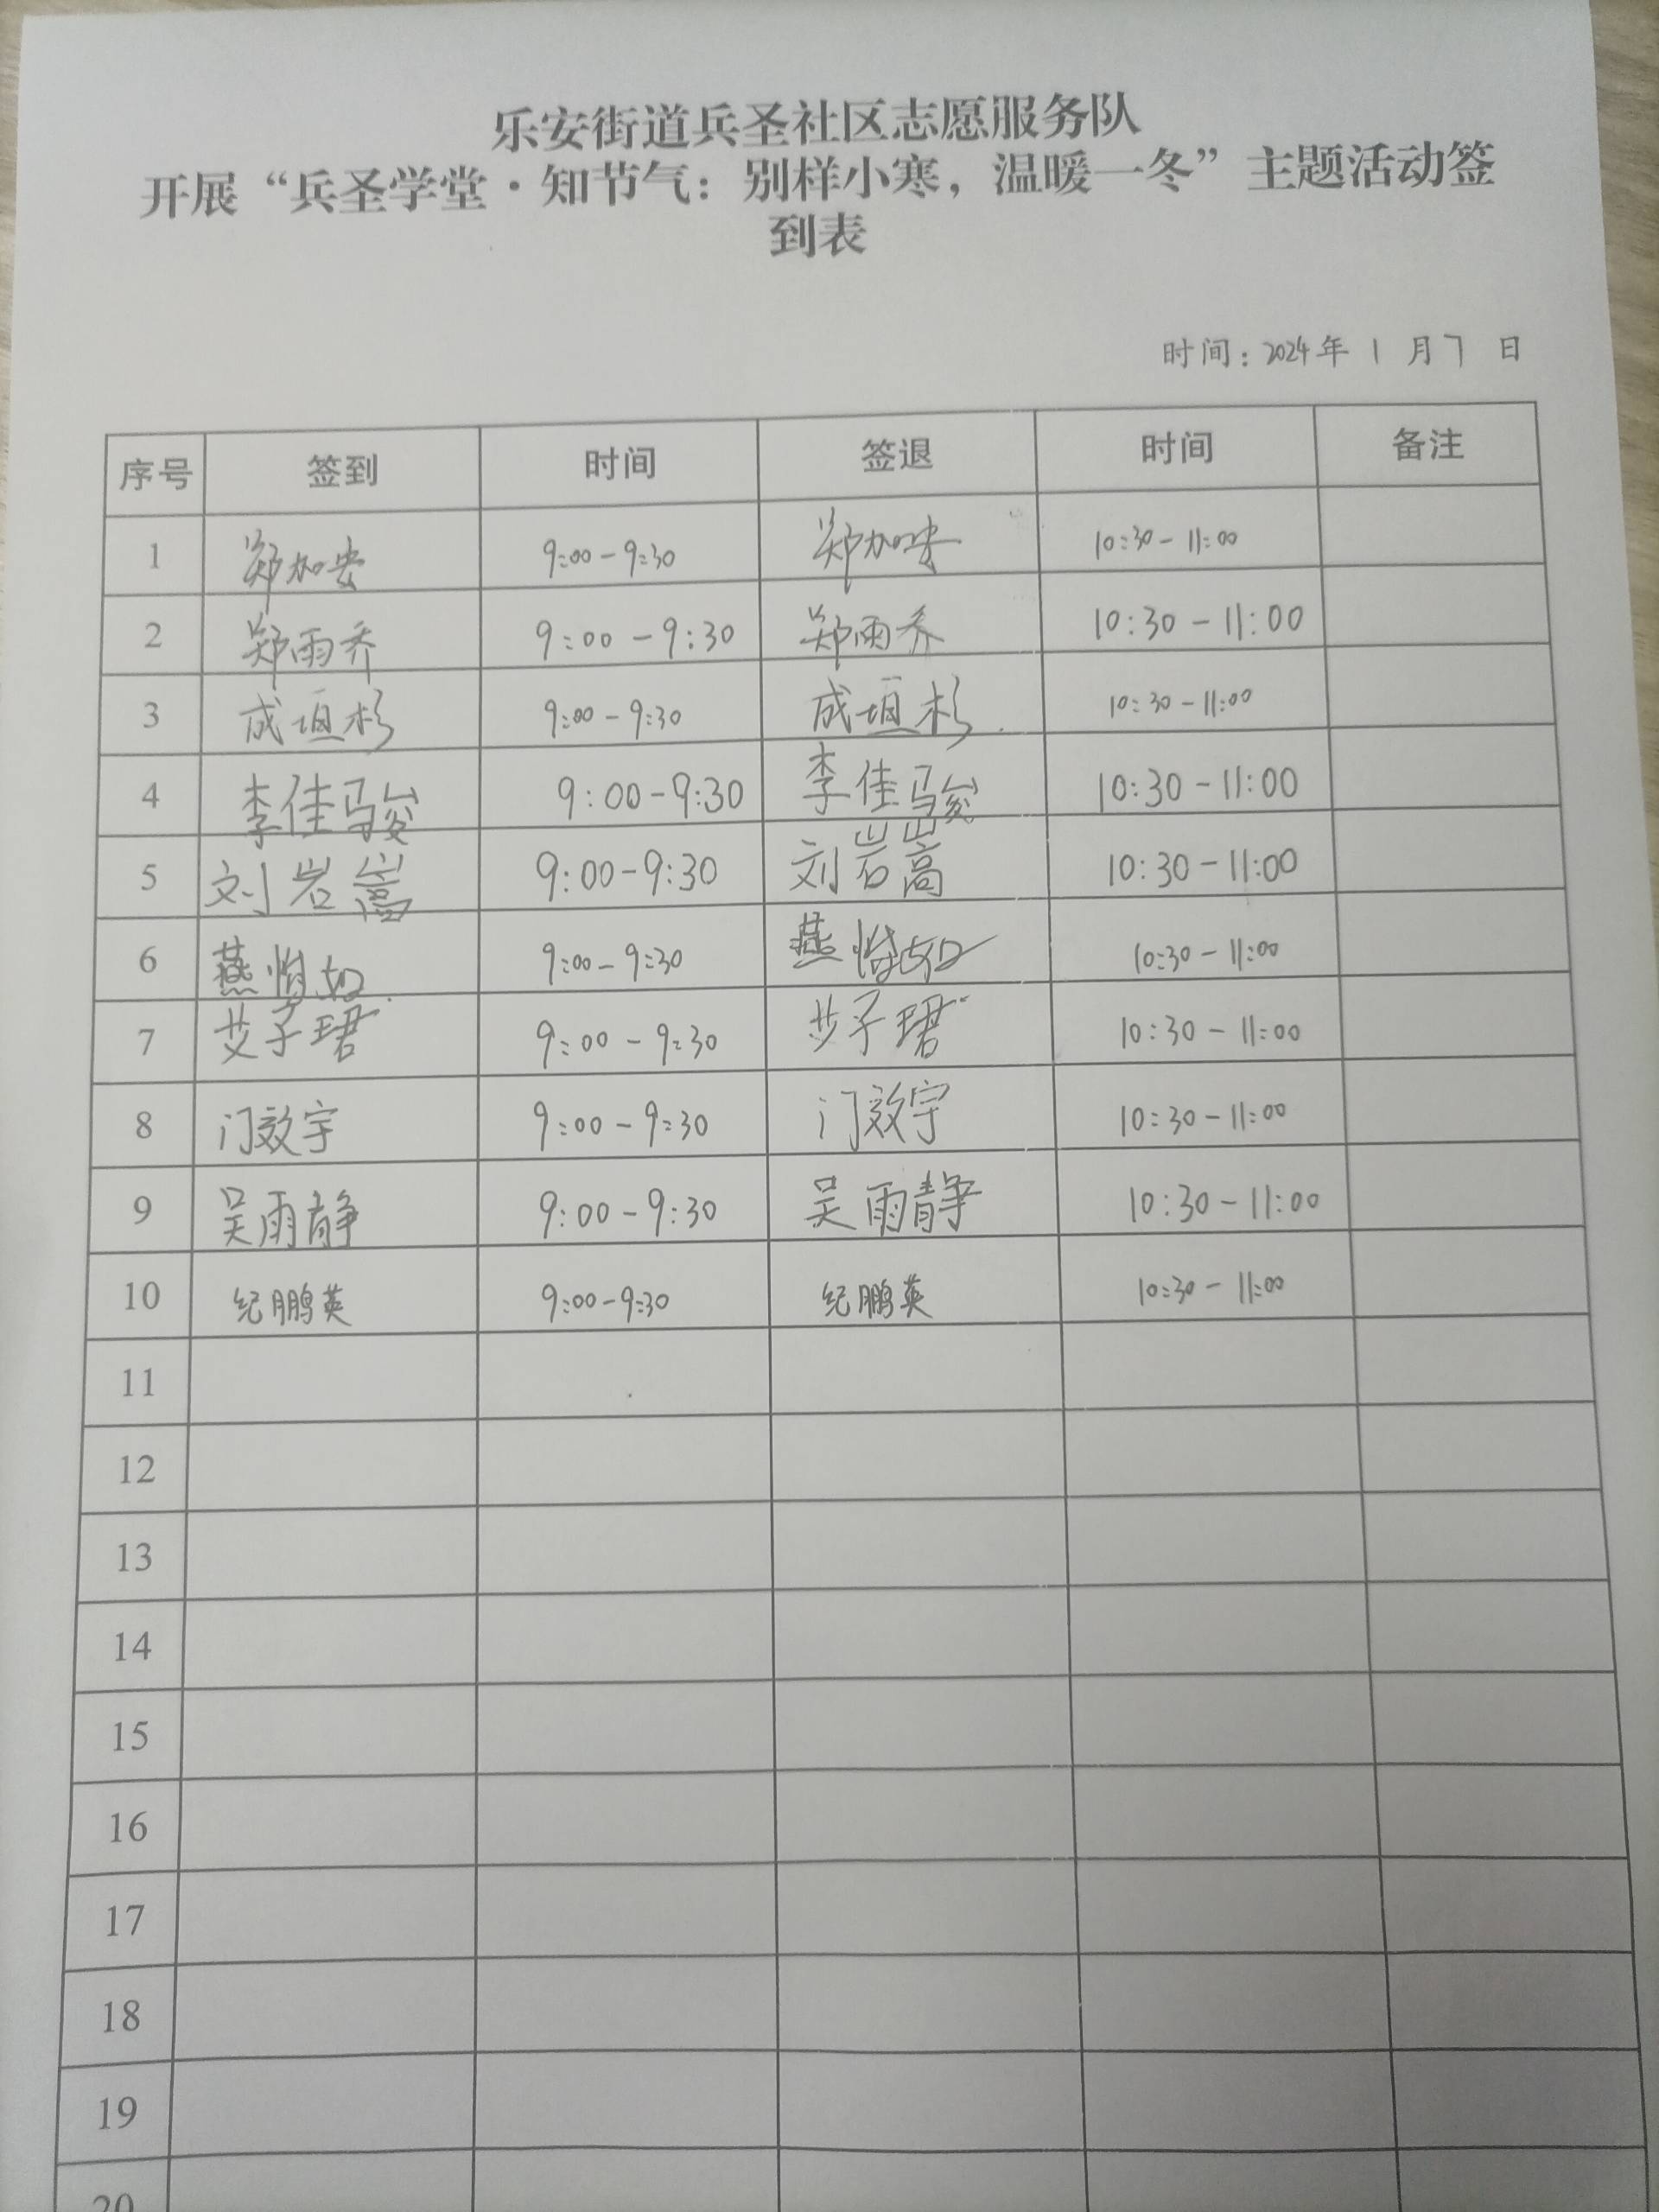 乐安街道兵圣社区志愿服务队
开展“兵圣学堂·知节气：别样小寒，温暖一冬”主题活动签
到表
时间：2024年 1 月 7 日
序号 签到 时间 签退 时间 备注
1 郑加安 9:00-9:30 郑加安 10:30-11:00
2 郑雨乔 9:00-9:30 郑雨乔 10:30-11:00
3 成垣杉 9:00-9:30 成垣杉 10:30-11:00
4 李佳骏 9:00-9:30 李佳骏 10:30-11:00
5 刘岩嵩 9:00-9:30 刘岩嵩 10:30-11:00
6 燕 9:00-9:30 燕 10:30-11:00
7 艾子珺 9:00-9:30 艾子珺 10:30-11:00
8 门效宇 9:00-9:30 门效宇 10:30-11:00
9 吴雨静 9:00-9:30 吴雨静 10:30-11:00
10 纪鹏英 9:00-9:30 纪鹏英 10:30-11:00
11
12
13
14
15
16
17
18
19
20